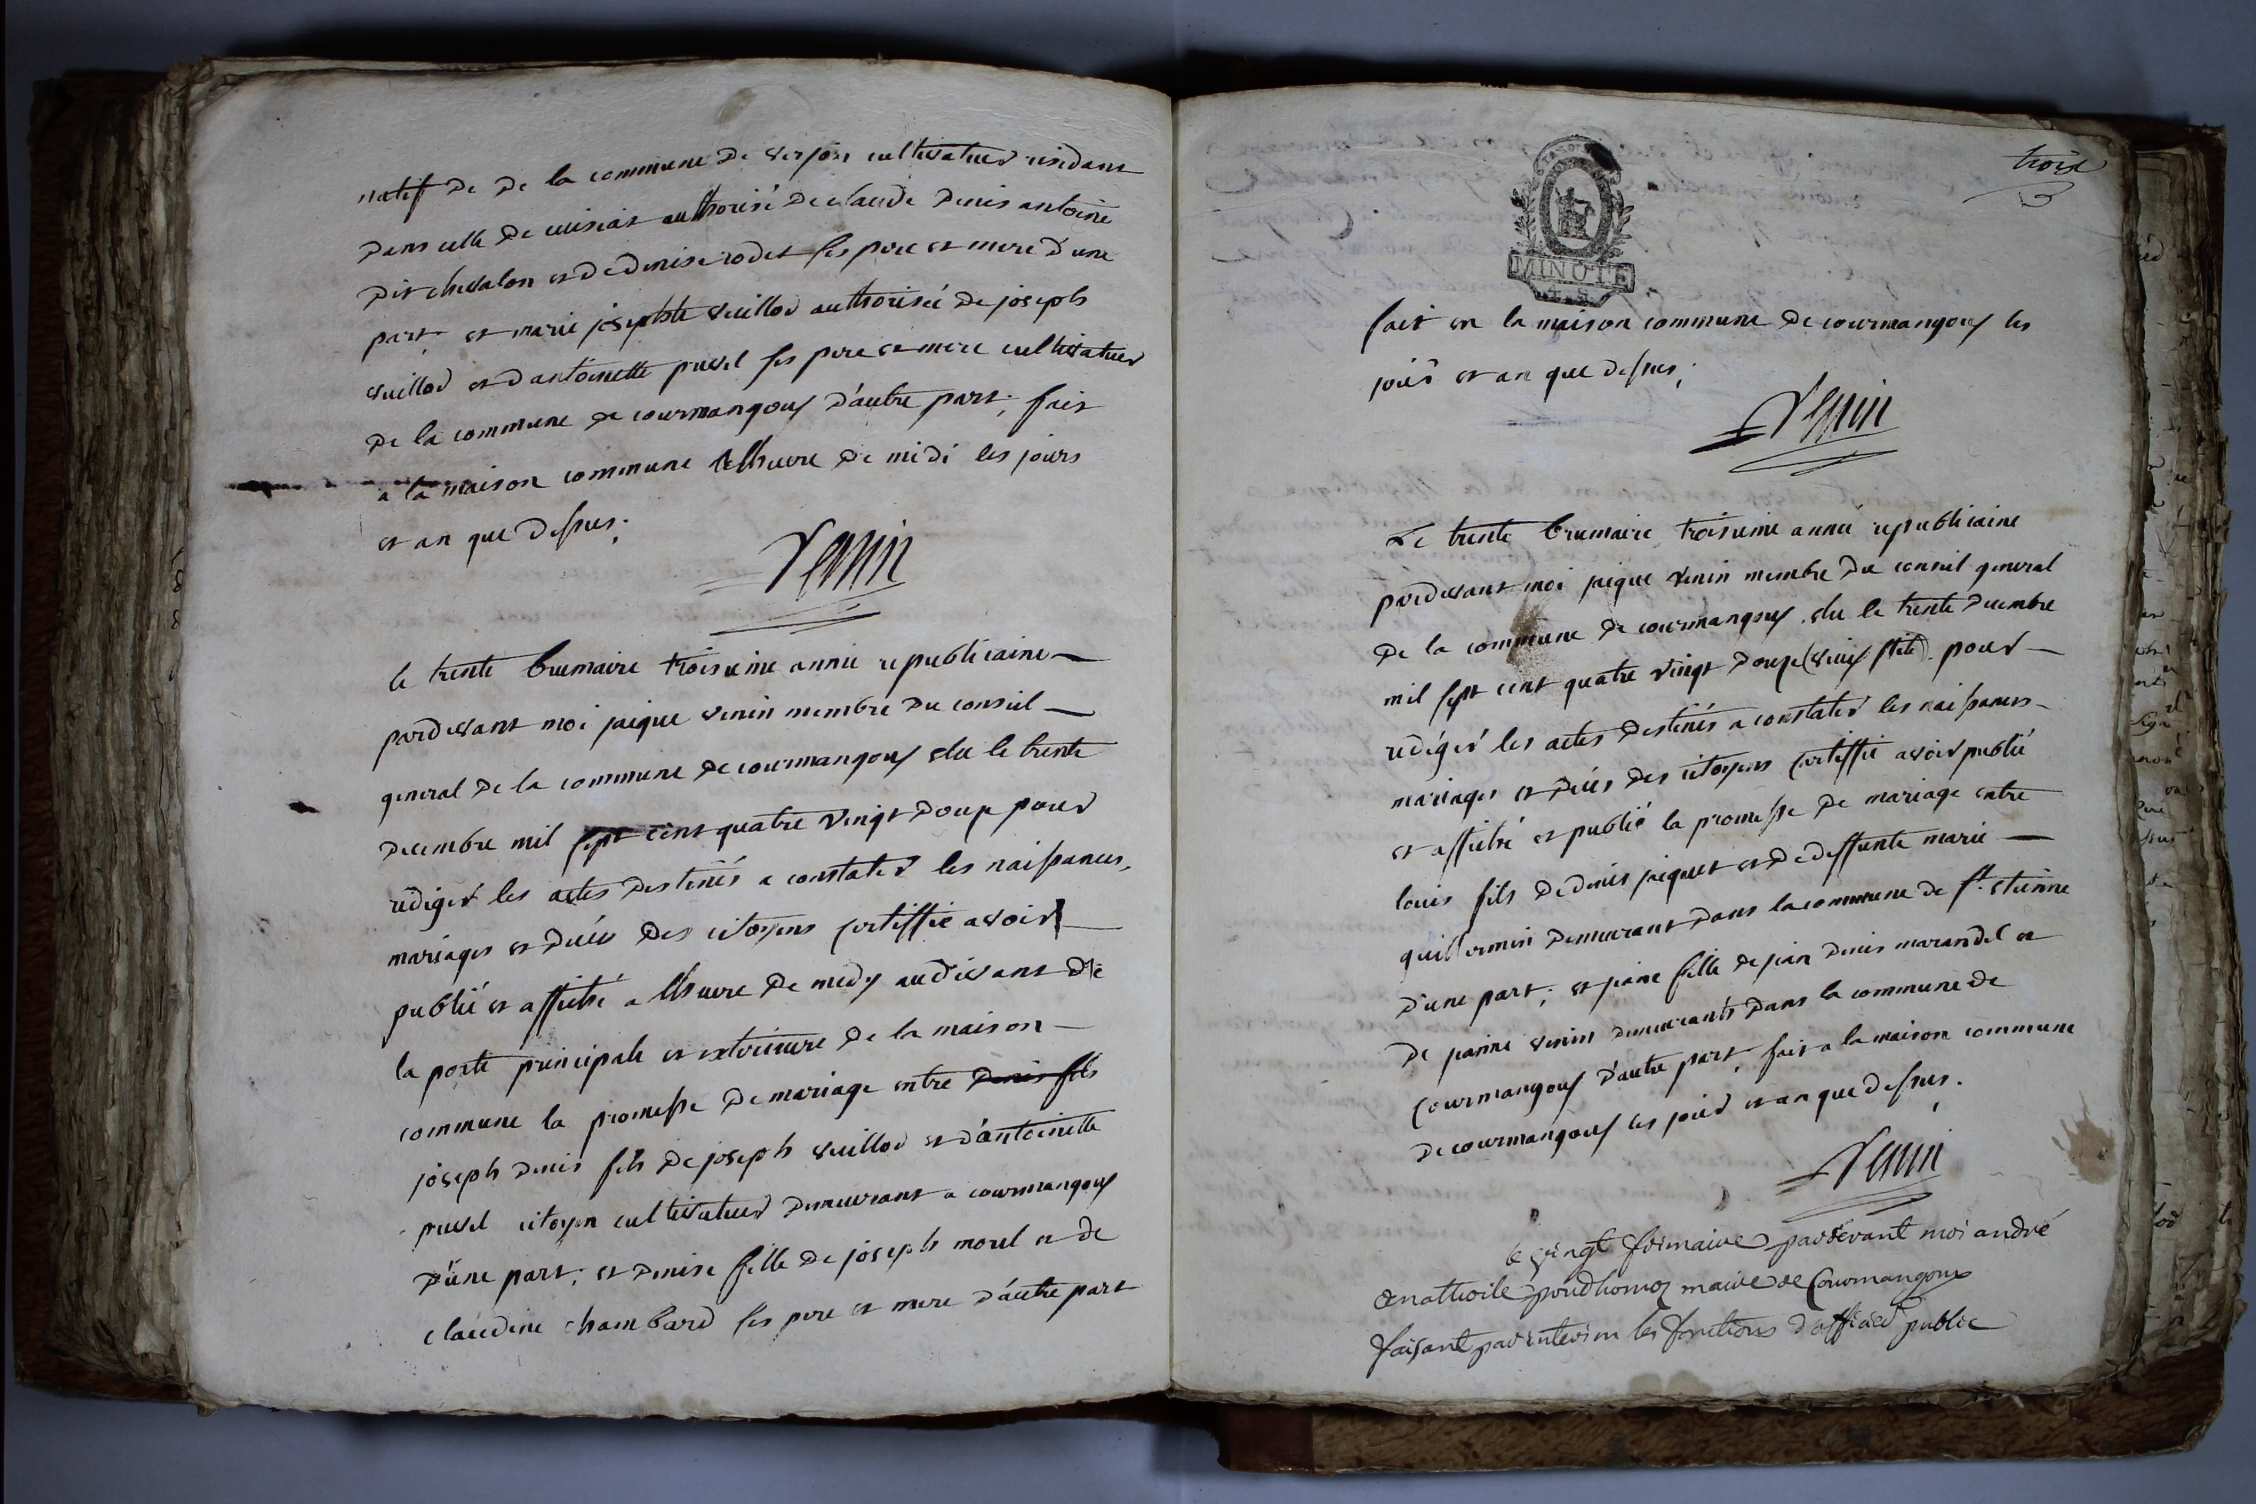 natif de de la commune de verjon cultivateur residant
dans celle de cuisiat authorisé de claude denis antoine
dit chevalon et de denise rodet ses pere et mere d'une
part; et marie josephte vuillod authorisée de joseph
vuillod et d'antoinette pusel ses pere et mere cultivateur
de la commune de courmangoux d'autre part; fait
a la maison commune a lheure de midi les jours
et an que dessus;
Venin
le trente brumaire troisieme année republicaine
pardevant moi jaique venin membre du conseil
general de la commune de courmangoux elu le trente
decembre mil sept cent quatre vingt douze pour
rediger les actes destinés a constater les naissances,
mariages et décés des citoyens certiffie avoir
publié et affiché a lheure de medy audevant de
la porte principale et exterieure de la maison
commune la promesse de mariage entre denis fils
joseph denis fils de joseph vuillod et d'antoinette
pusel citoyen cultivateur demeurant a courmangoux
d'une part; et denise fille de joseph morel et de
claudine chambard ses pere et mere d'autre part
trois
3
MINUTE
fait en la maison commune de courmangoux les
jour et an que dessus;
Venin
Le trente brumaire troisieme année republicaine
pardevant moi jaique venin membre du conseil general
de la commune de courmangoux elu le trente decembre
mil sept cent quatre vingt douze (vieux stile) pour
rédiger les actes destinés a constater les naissances
mariages et décés des citoyens certiffie avoir publié
et affiché et publié la promesse de mariage entre
louis fils de denis jaiquet et de deffunte marie
guillermin demeurant dans la commune de st. etienne
d'une part; et jeane fille de jean denis marandel et
de janne venin demeurants dans la commune de
Courmangoux d'autre part, fait a la maison commune
de courmangoux les jour et an que dessus.
Venin
le vingt frimaire pardevant moi andré
prudhomez maire de Courmangoux
faisant par interim les fonctions d'officier public